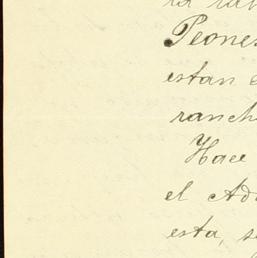 Peones
estan
ranch
Hace
el Ad
esta, s